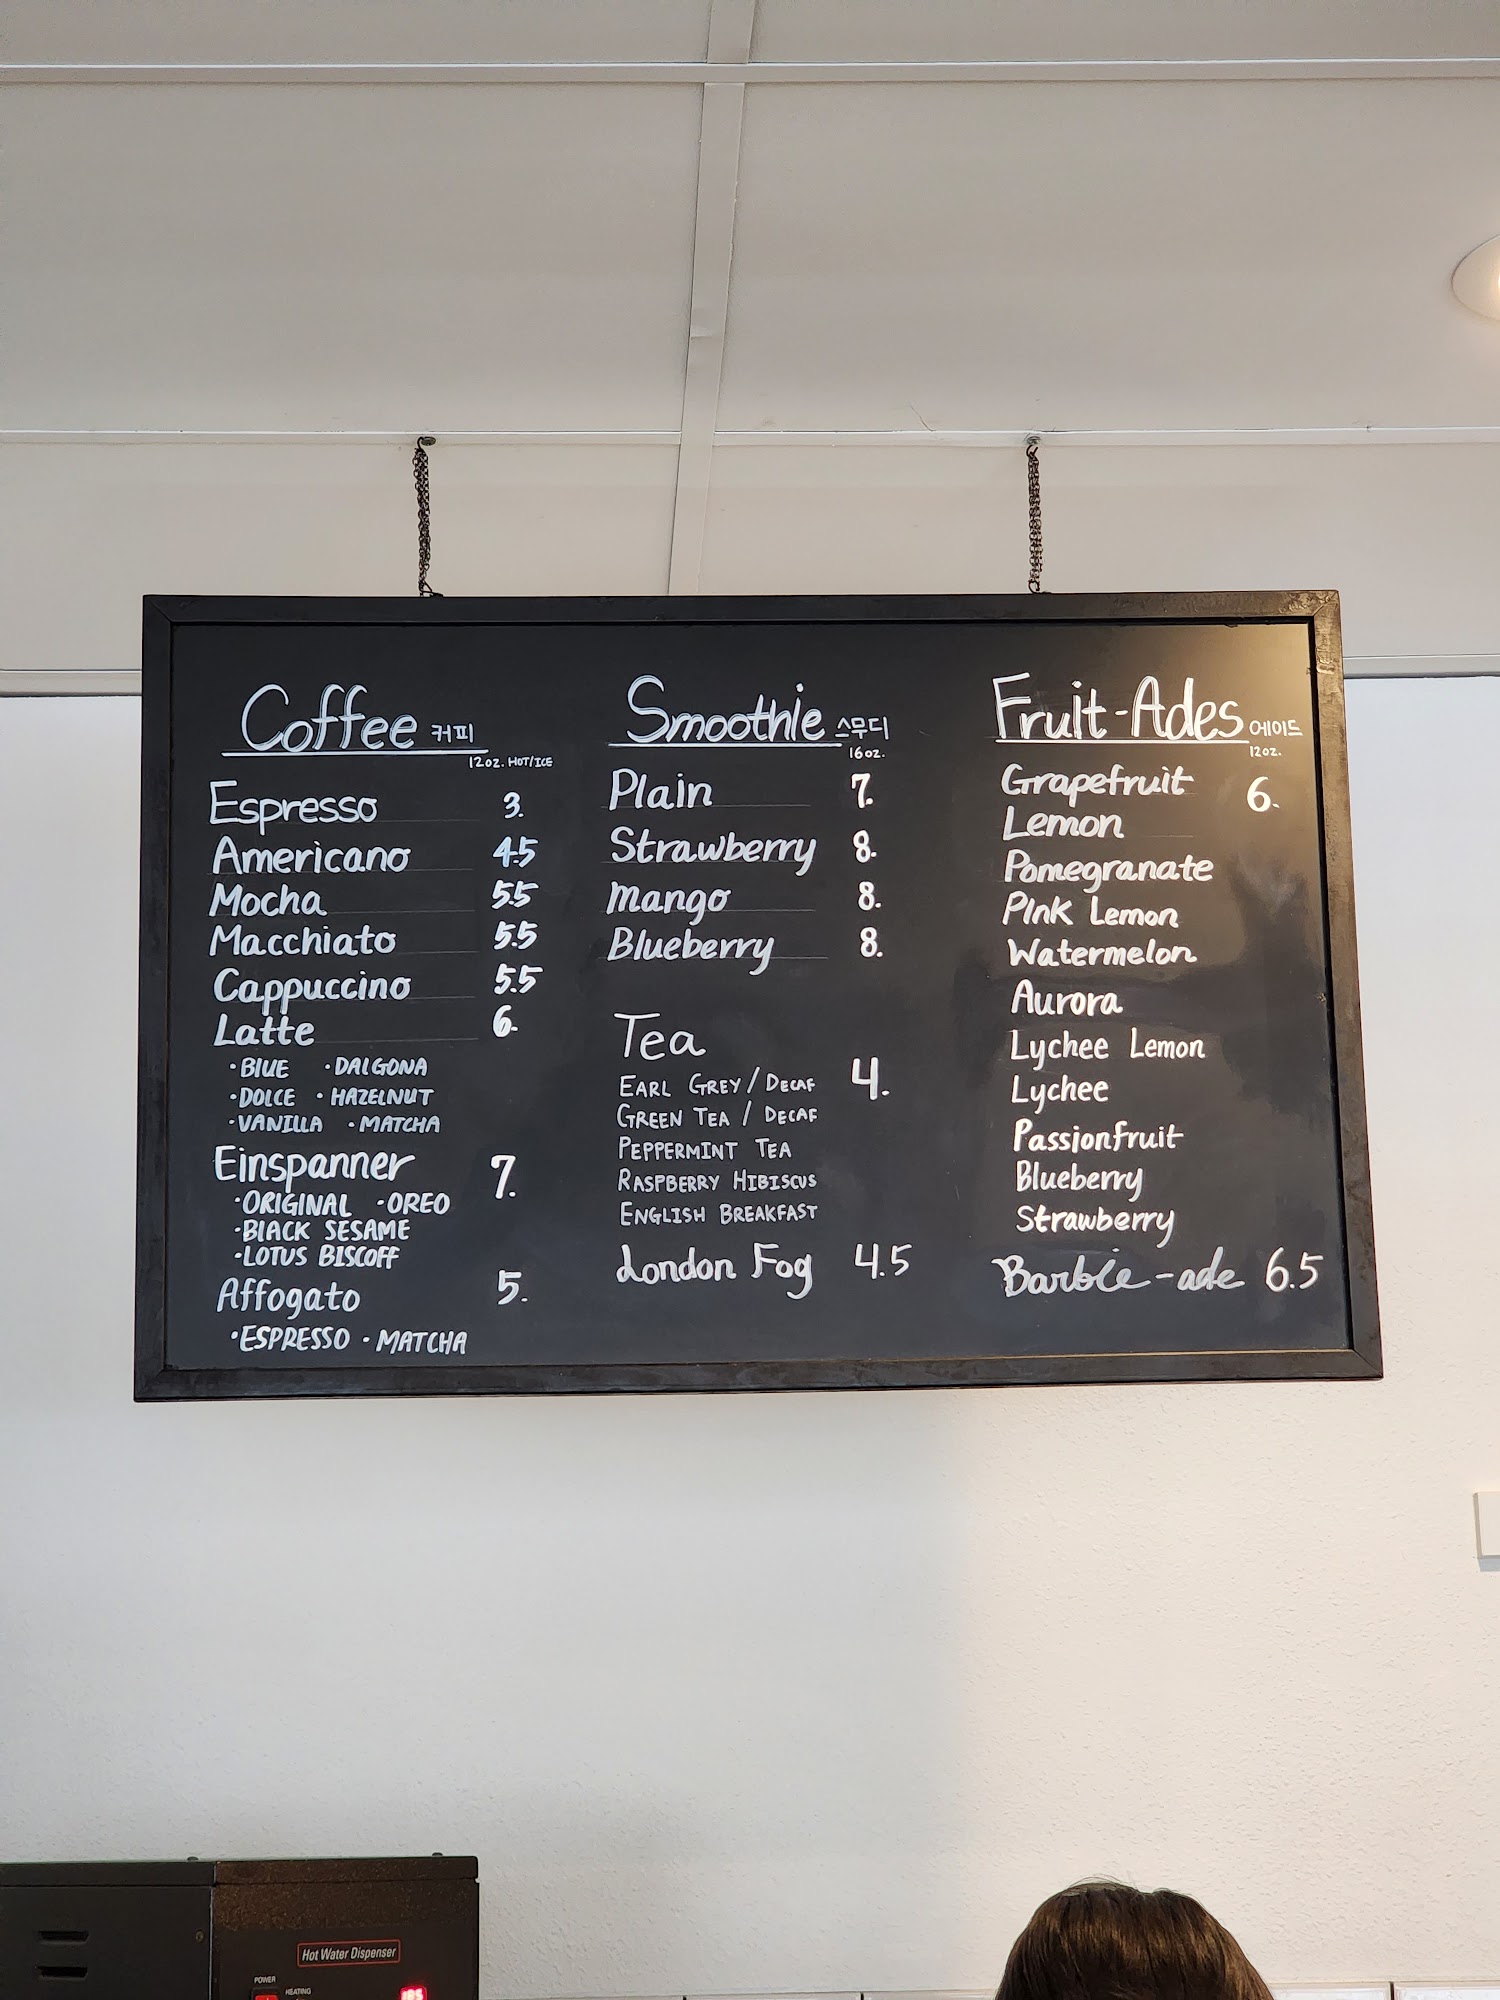 Coffee 커피
12oz. HOT/ICE
Espresso 3.
Americano 4.5
Mocha 5.5
Macchiato 5.5
Cappuccino 5.5
Latte 6.
·BLUE ·DALGONA
·DOLCE ·HAZELNUT
·VANILLA ·MATCHA
Einspanner 7.
·ORIGINAL ·OREO
·BLACK SESAME
·LOTUS BISCOFF
Affogato 5.
·ESPRESSO ·MATCHA
Smoothie 스무디
16oz.
Plain 7.
Strawberry 8.
Mango 8.
Blueberry 8.
Tea
EARL GREY/DECAF 4.
GREEN TEA / DECAF
PEPPERMINT TEA
RASPBERRY HIBISCUS
ENGLISH BREAKFAST
London Fog 4.5
Fruit-Ades 에이드
12oz.
Grapefruit 6.
Lemon
Pomegranate
Pink Lemon
Watermelon
Aurora
Lychee Lemon
Lychee
Passionfruit
Blueberry
Strawberry
Barbie-ade 6.5
Hot Water Dispenser
POWER
HEATING
185